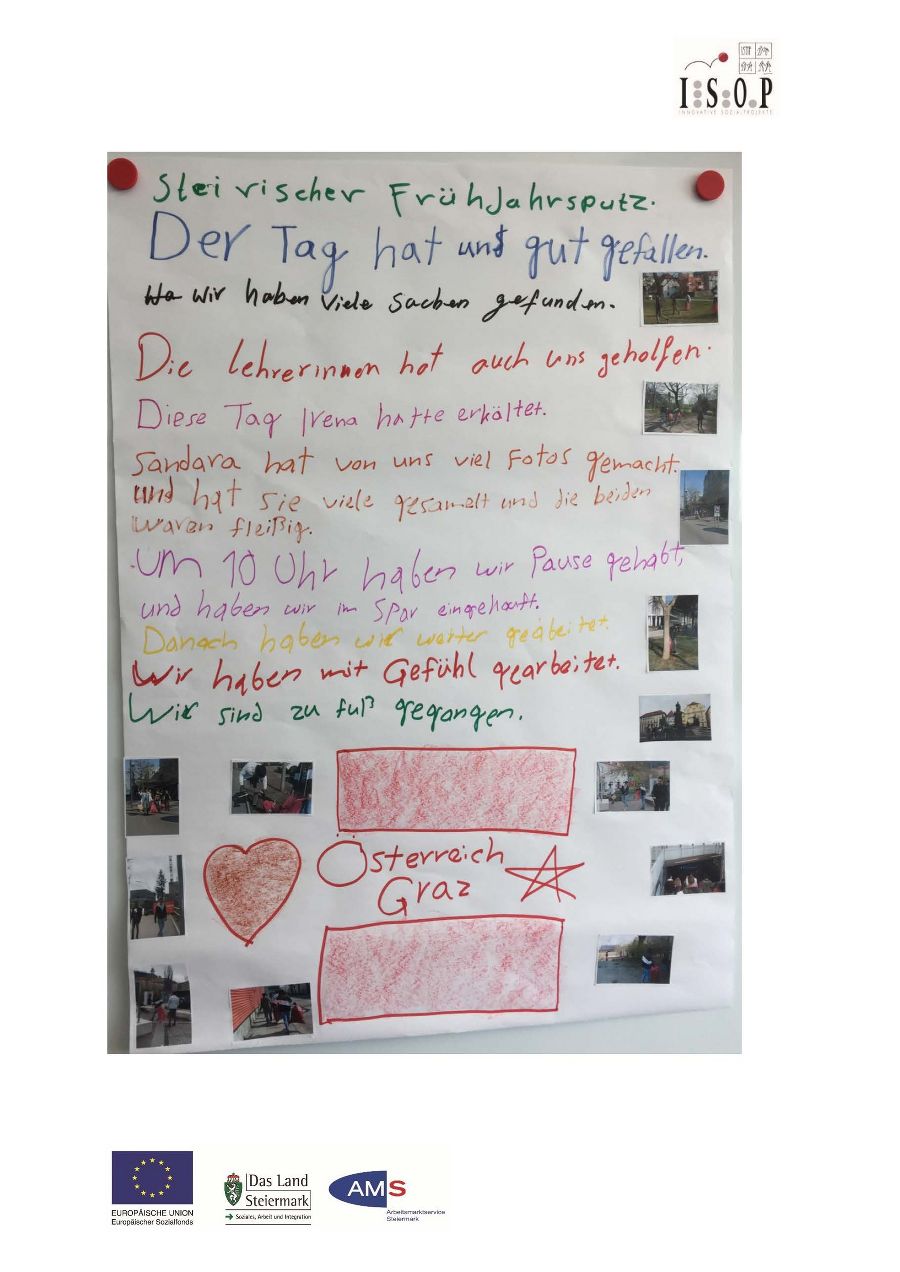 I:S:O.P
INNOVATIVE SOZIALPROJEKTE
Steirischer Frühjahrsputz.
Der Tag hat uns gut gefallen.
wir haben viele sachen gefunden.
Die lehrerinnen hat auch uns geholfen.
Diese Tag Irena hatte erkältet.
Sandara hat von uns viel Fotos gemacht.
und hat sie viele gesamelt und die beiden
waren fleißig.
.Um 10 Uhr haben wir Pause gehabt,
und haben wir im Spar eingekauft.
Danach haben wir weiter geäbeitet.
Wir haben mit Gefühl gearbeitet.
Wir sind zu fuß gegangen.
Österreich
Graz
EUROPÄISCHE UNION
Europäischer Sozialfonds
Das Land
Steiermark
→ Soziales, Arbeit und Integration
AMS
Arbeitsmarktservice
Steiermark